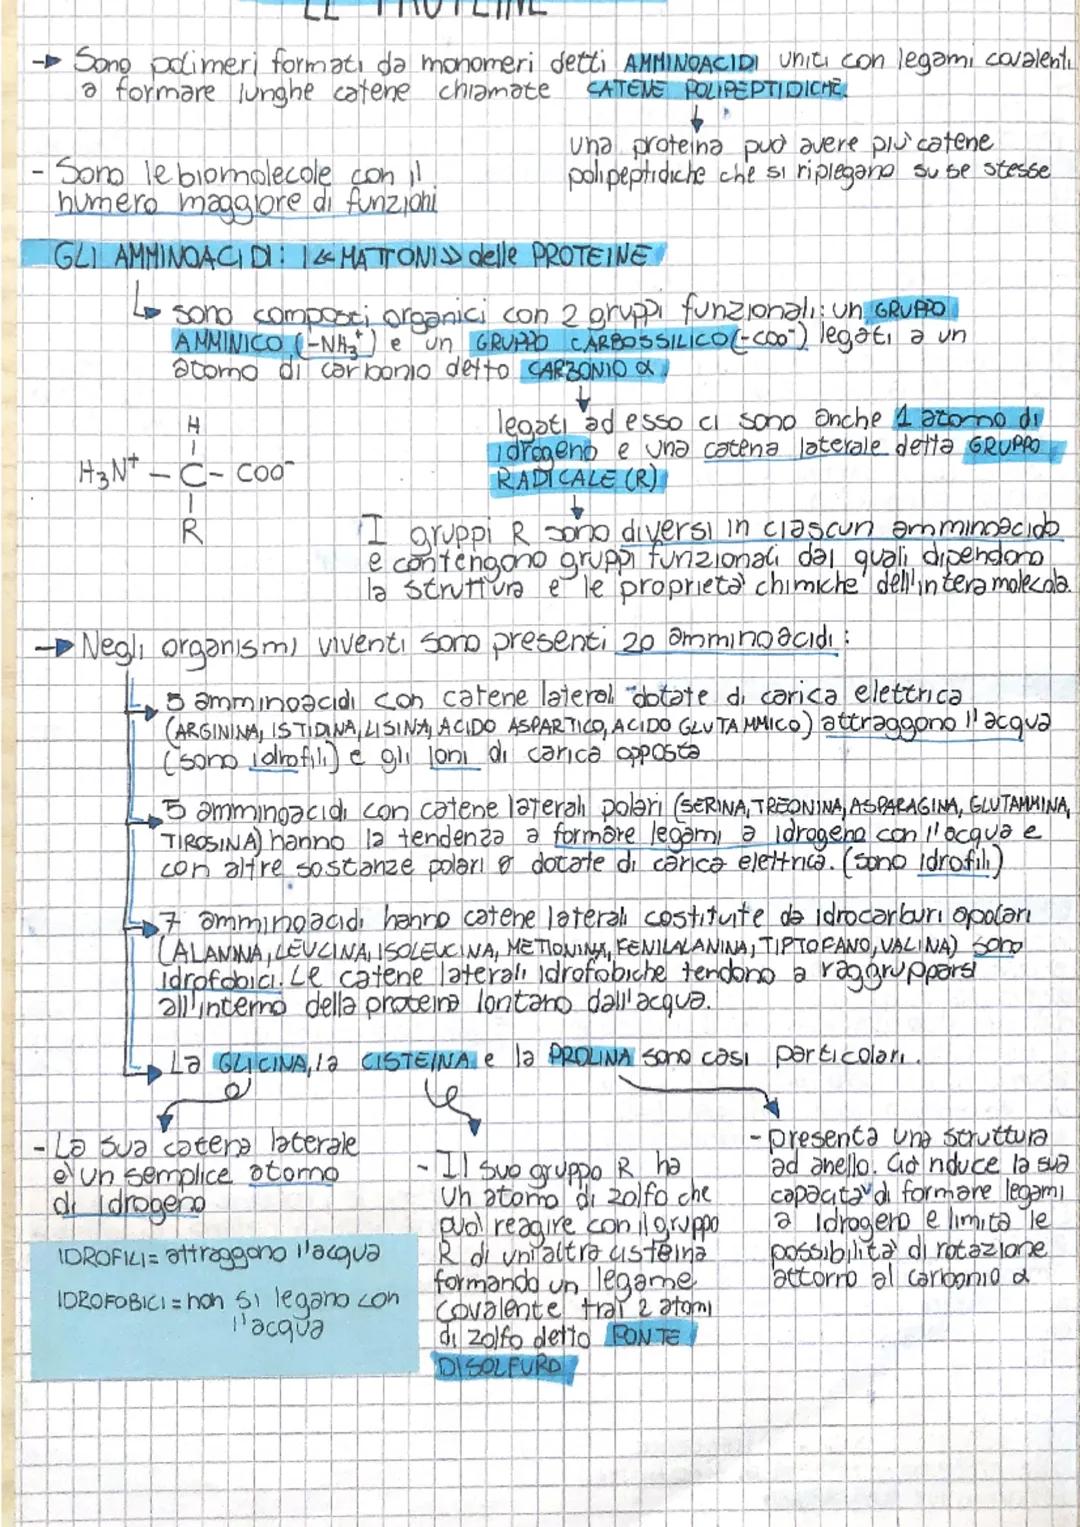 LE PROTEINE
→ Sono polimeri formati da monomeri detti AMMINOACIDI uniti con legami covalenti
a formare lunghe catene chiamate CATENE POLIPEPTIDICHE.
una proteina può avere più catene
polipeptidiche che si riplegano su se stesse
- Sono le biomolecole con il
numero maggiore di funzioni
GLI AMMINOACIDI: I «MATTONI» delle PROTEINE
sono composti organici con 2 gruppi funzionali: un GRUPPO
AMMINICO (-NH₃⁺) e un GRUPPO CARBOSSILICO (-COO⁻) legati a un
atomo di carbonio detto CARBONIO α
legati ad esso ci sono anche 1 atomo di
idrogeno e una catena laterale detta GRUPPO
RADICALE (R)
H
H₃N⁺ - C - COO⁻
R
I gruppi R sono diversi in ciascun amminoacido
e contengono gruppi funzionali dai quali dipendono
la struttura e le proprietà chimiche dell'intera molecola.
→ Negli organismi viventi sono presenti 20 amminoacidi:
5 amminoacidi con catene laterali dotate di carica elettrica
(ARGININA, ISTIDINA, LISINA, ACIDO ASPARTICO, ACIDO GLUTAMMICO) attraggono l'acqua
(sono idrofili) e gli ioni di carica opposta
5 amminoacidi con catene laterali polari (SERINA, TREONINA, ASPARAGINA, GLUTAMMINA,
TIROSINA) hanno la tendenza a formare legami a idrogeno con l'acqua e
con altre sostanze polari o dotate di carica elettrica. (sono idrofili)
7 amminoacidi hanno catene laterali costituite da idrocarburi apolari
(ALANINA, LEUCINA, ISOLEUCINA, METIONINA, FENILALANINA, TIPTOFANO, VALINA) sono
idrofobici. Le catene laterali idrofobiche tendono a raggrupparsi
all'interno della proteina lontano dall'acqua.
La GLICINA, la CISTEINA e la PROLINA sono casi particolari.
- La sua catena laterale
è un semplice atomo
di idrogeno
- Il suo gruppo R ha
un atomo di zolfo che
può reagire con il gruppo
R di un'altra cisteina
formando un legame
covalente trai 2 atomi
di zolfo detto PONTE
DISOLFURO
- presenta una struttura
ad anello. Ciò riduce la sua
capacità di formare legami
a idrogeno e limita le
possibilità di rotazione
attorno al carbonio α
IDROFILI = attraggono l'acqua
IDROFOBICI = non si legano con
l'acqua